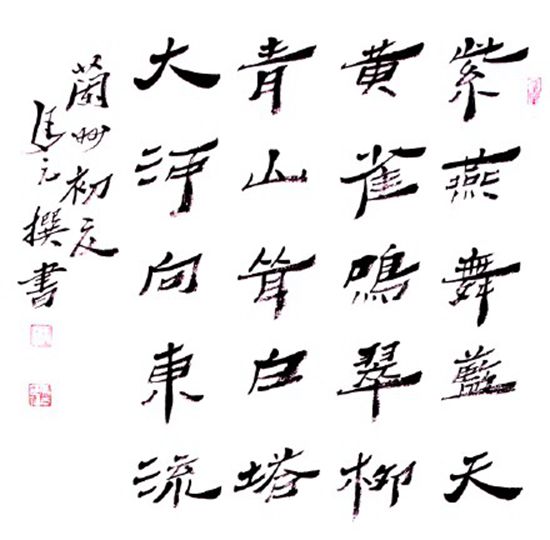 紫燕舞藍天
黄雀鳴翠柳
青山耸白塔
大河向東流
蘭州初夏
馬元撰書